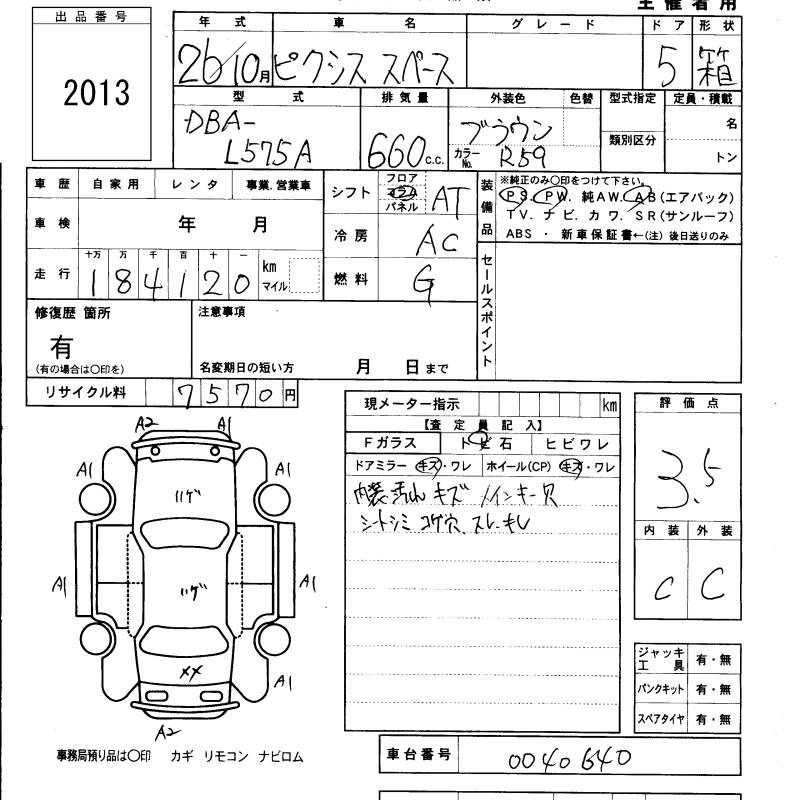 主催者用
出品番号
2013
年式 車名 グレード ドア 形状
26/10月 ピクシス スペース 5 箱
型式 排気量 外装色 色替 型式指定 定員・積載
DBA-
L575A
660c.c.
ブラウン
カラーNo. R59
類別区分
名
トン
車歴 自家用 レンタ 事業.営業車
車検 年 月
走行 十万 万 千 百 十 一
184120 km マイル
シフト フロア コラム パネル AT
冷房 AC
燃料 G
装備品
※純正のみ〇印をつけて下さい。
PS. PW. 純AW. AB(エアバック)
TV. ナビ. カワ. SR(サンルーフ)
ABS ・ 新車保証書←(注) 後日送りのみ
セールスポイント
修復歴 箇所
有
(有の場合は〇印を)
注意事項
名変期日の短い方 月 日まで
リサイクル料 7570円
現メーター指示 km
【査定員記入】
Fガラス トビ石 ヒビワレ
ドアミラー キズ・ワレ ホイール(CP) キズ・ワレ
内装汚れ キズ メインキー穴
シートシミ コゲ穴、スレ・キレ
評価点
3.5
内装 外装
C C
A2 A1
A1 A1
ハゲ
A1 A1
ハゲ
XX
A1
A2
ジャッキ工具 有・無
パンクキット 有・無
スペアタイヤ 有・無
事務局預り品は〇印 カギ リモコン ナビロム
車台番号 0040640